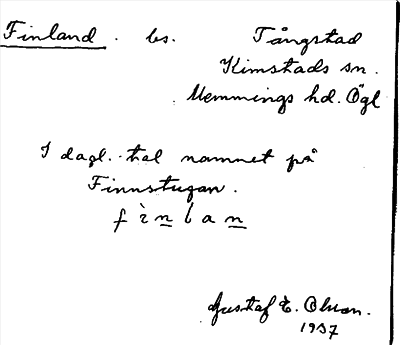 Finland. bs. Tångstad
Kimstads sn.
Memmings hd. Ögl
I dagl. tal namnet på
Finnstugan.
fìnlan
Gustaf E. Olson.
1937